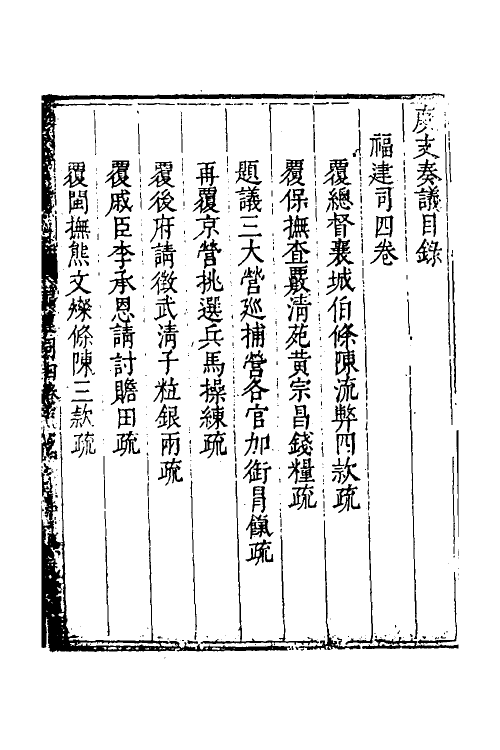 度支奏議目錄
福建司四卷
覆總督襄城伯條陳流弊四款疏
覆保撫查覈清苑黃宗昌錢糧疏
題議三大營廵捕營各官加銜冐餼疏
再覆京營挑選兵馬操練疏
覆後府請徵武清子粒銀兩疏
覆戚臣李承恩請討贍田疏
覆閩撫熊文燦條陳三款疏